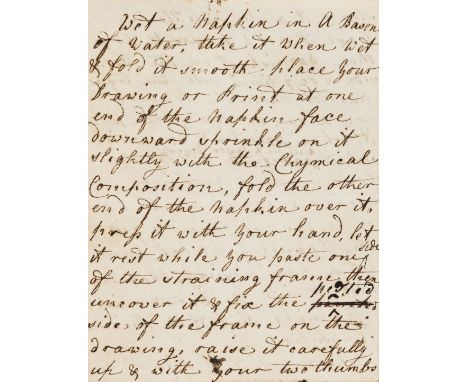 Wet a Napkin in A Bason
of Water, take it when wet
& fold it smooth place your
Drawing or Print at one
end of the Napkin face
downward sprinkle on it
slightly with the Chymical
Composition, fold the other
end of the Napkin over it,
press it with your hand, let
it rest while you paste one side
of the straining frame then
uncover it & fix the pasted
side, of the frame on the
drawing, raise it carefully
up & with your two thumbs